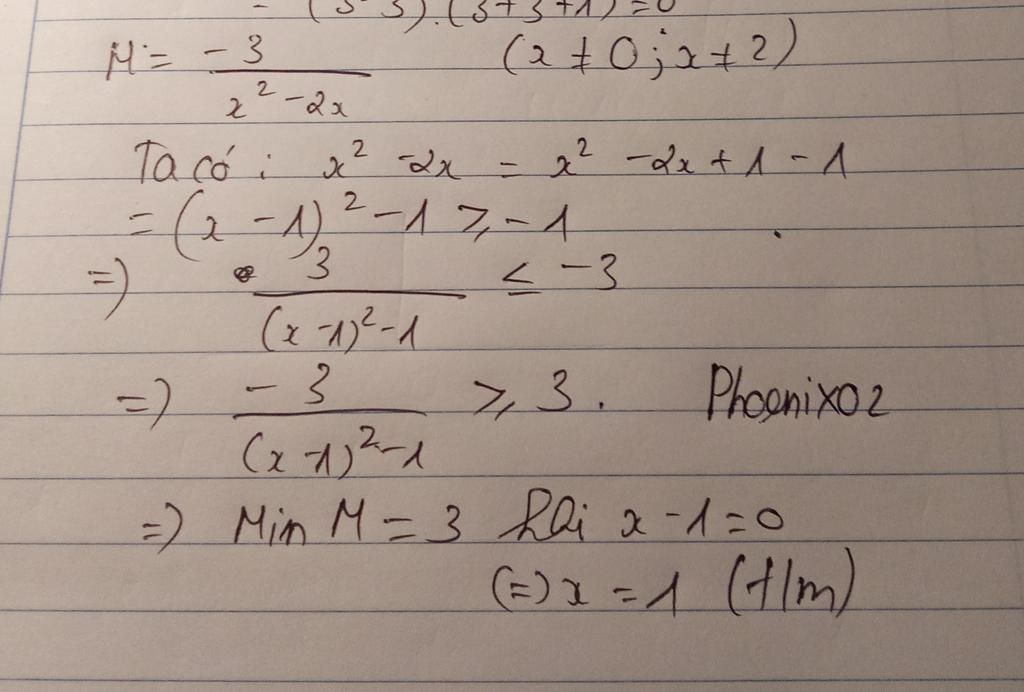 = (3-3).(3+3+1)=0
M = -3/(x² - 2x) (x ≠ 0; x ≠ 2)
Ta có : x² - 2x = x² - 2x + 1 - 1
= (x - 1)² - 1 ≥ - 1
=> 3/((x - 1)² - 1) ≤ -3
=> -3/((x - 1)² - 1) ≥ 3. Phoenix02
=> Min M = 3 khi x - 1 = 0
(=) x = 1 (t/m)